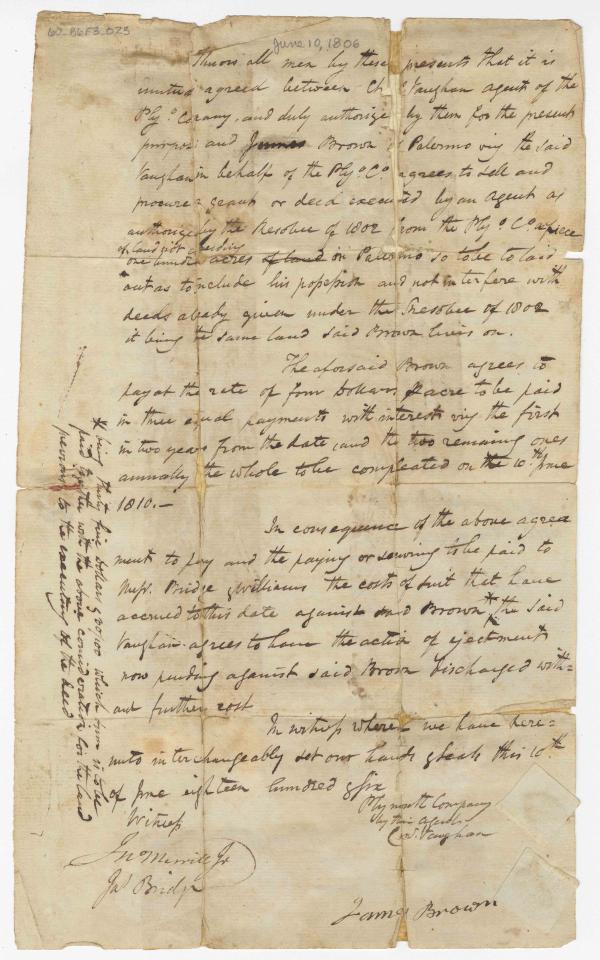 60_B6F3_025
June 10, 1806
Know all men by these presents that it is
mutual agreed between Ch Vaughan agent of the
Plyo. Company and duly authorize by them for the present
purpose and James Brown of Palermo viz the said
Vaughan in behalf of the Plyo. Co. agrees to sell and
procure a grant or deed executed by an agent as
authorize by the Resolve of 1802 from the Plyo. Co. a piece
of land not exceeding
one hundred acres of land in Palermo so to be to laid
out as to include his possession and not interfere with
deeds already given under the Resolve of 1802
it being the same land said Brown lives on.
The aforsaid Brown agrees to
pay at the rate of four Dollars p acre to be paid
in three equal payments with interest viz the first
in two years from the date, and the two remaining ones
annually the whole to be compleated on the 10th June
1810.—
In consequence of the above agree
ment to pay and the paying or securing to be paid to
Mess. Bridge & Williams the costs of suit that have
accrued to this date against said Brown * the said
Vaughan agrees to have the action of ejectment
now pending against said Brown discharged with=
out further cost
In witness where= we have here=
unto interchangeably set our hands & seals this 10th
of June eighteen hundred & six
Witness
Plymouth Company
by their Agent
Ch. Vaughan
Jno Merrill Jr
Jas Bridge
James Brown
* being thirty five Dollars & 20/100 which sum is to be
paid together with the above consideration for the land
previous to the executing of the deed